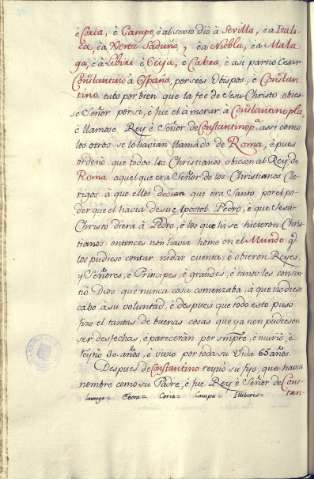 è Coria, è Campo, è al sexto dio à Sevilla, è a Itali-
ca, è a Xerez Saduno, è a Niebla, è a Mala-
ga, è à è Ecija, è Cabra, è asi partio Cesar
Constantino à España, por seis Obispos, è Constan-
tino tubo por bien que la fee de Jesu Christo obiese
Señor por si, è fue el à morar à Constantinopla,
è llamose Rey è Señor de Constantinopla. assi como
los otros se lo habian llamado de Roma, è pues
ordenò que todos los Christianos obiesen al Rey de
Roma aquel que era Señor de los Christianos Cle-
rigos, à que ellos decian que era Santo por el po-
der que el havia de su Apostol Pedro, è que Jesu
Christo diera à Pedro, è los que se hicieron Chris-
tianos entonces non havia home en el Mundo q.
los pudiese contar nin dar cuenta, è obieron Reyes,
y Señores, è Principes, è grandes, è tanto les
Dios que nunca cosa comenzaba, à que no diese
cabo à su voluntad, è despues que todo esto puso
fizo el tantas de buenas cosas que ya non pudiesen
ser desfechas, è pareceran por siempre, è muriò, è
reynò 30 años, è vivio por toda su Vida 65 años.
Despues de Constantino reynò su fijo, que havia
nombre como su Padre, è fue Rey è Señor de Cons-
tan-